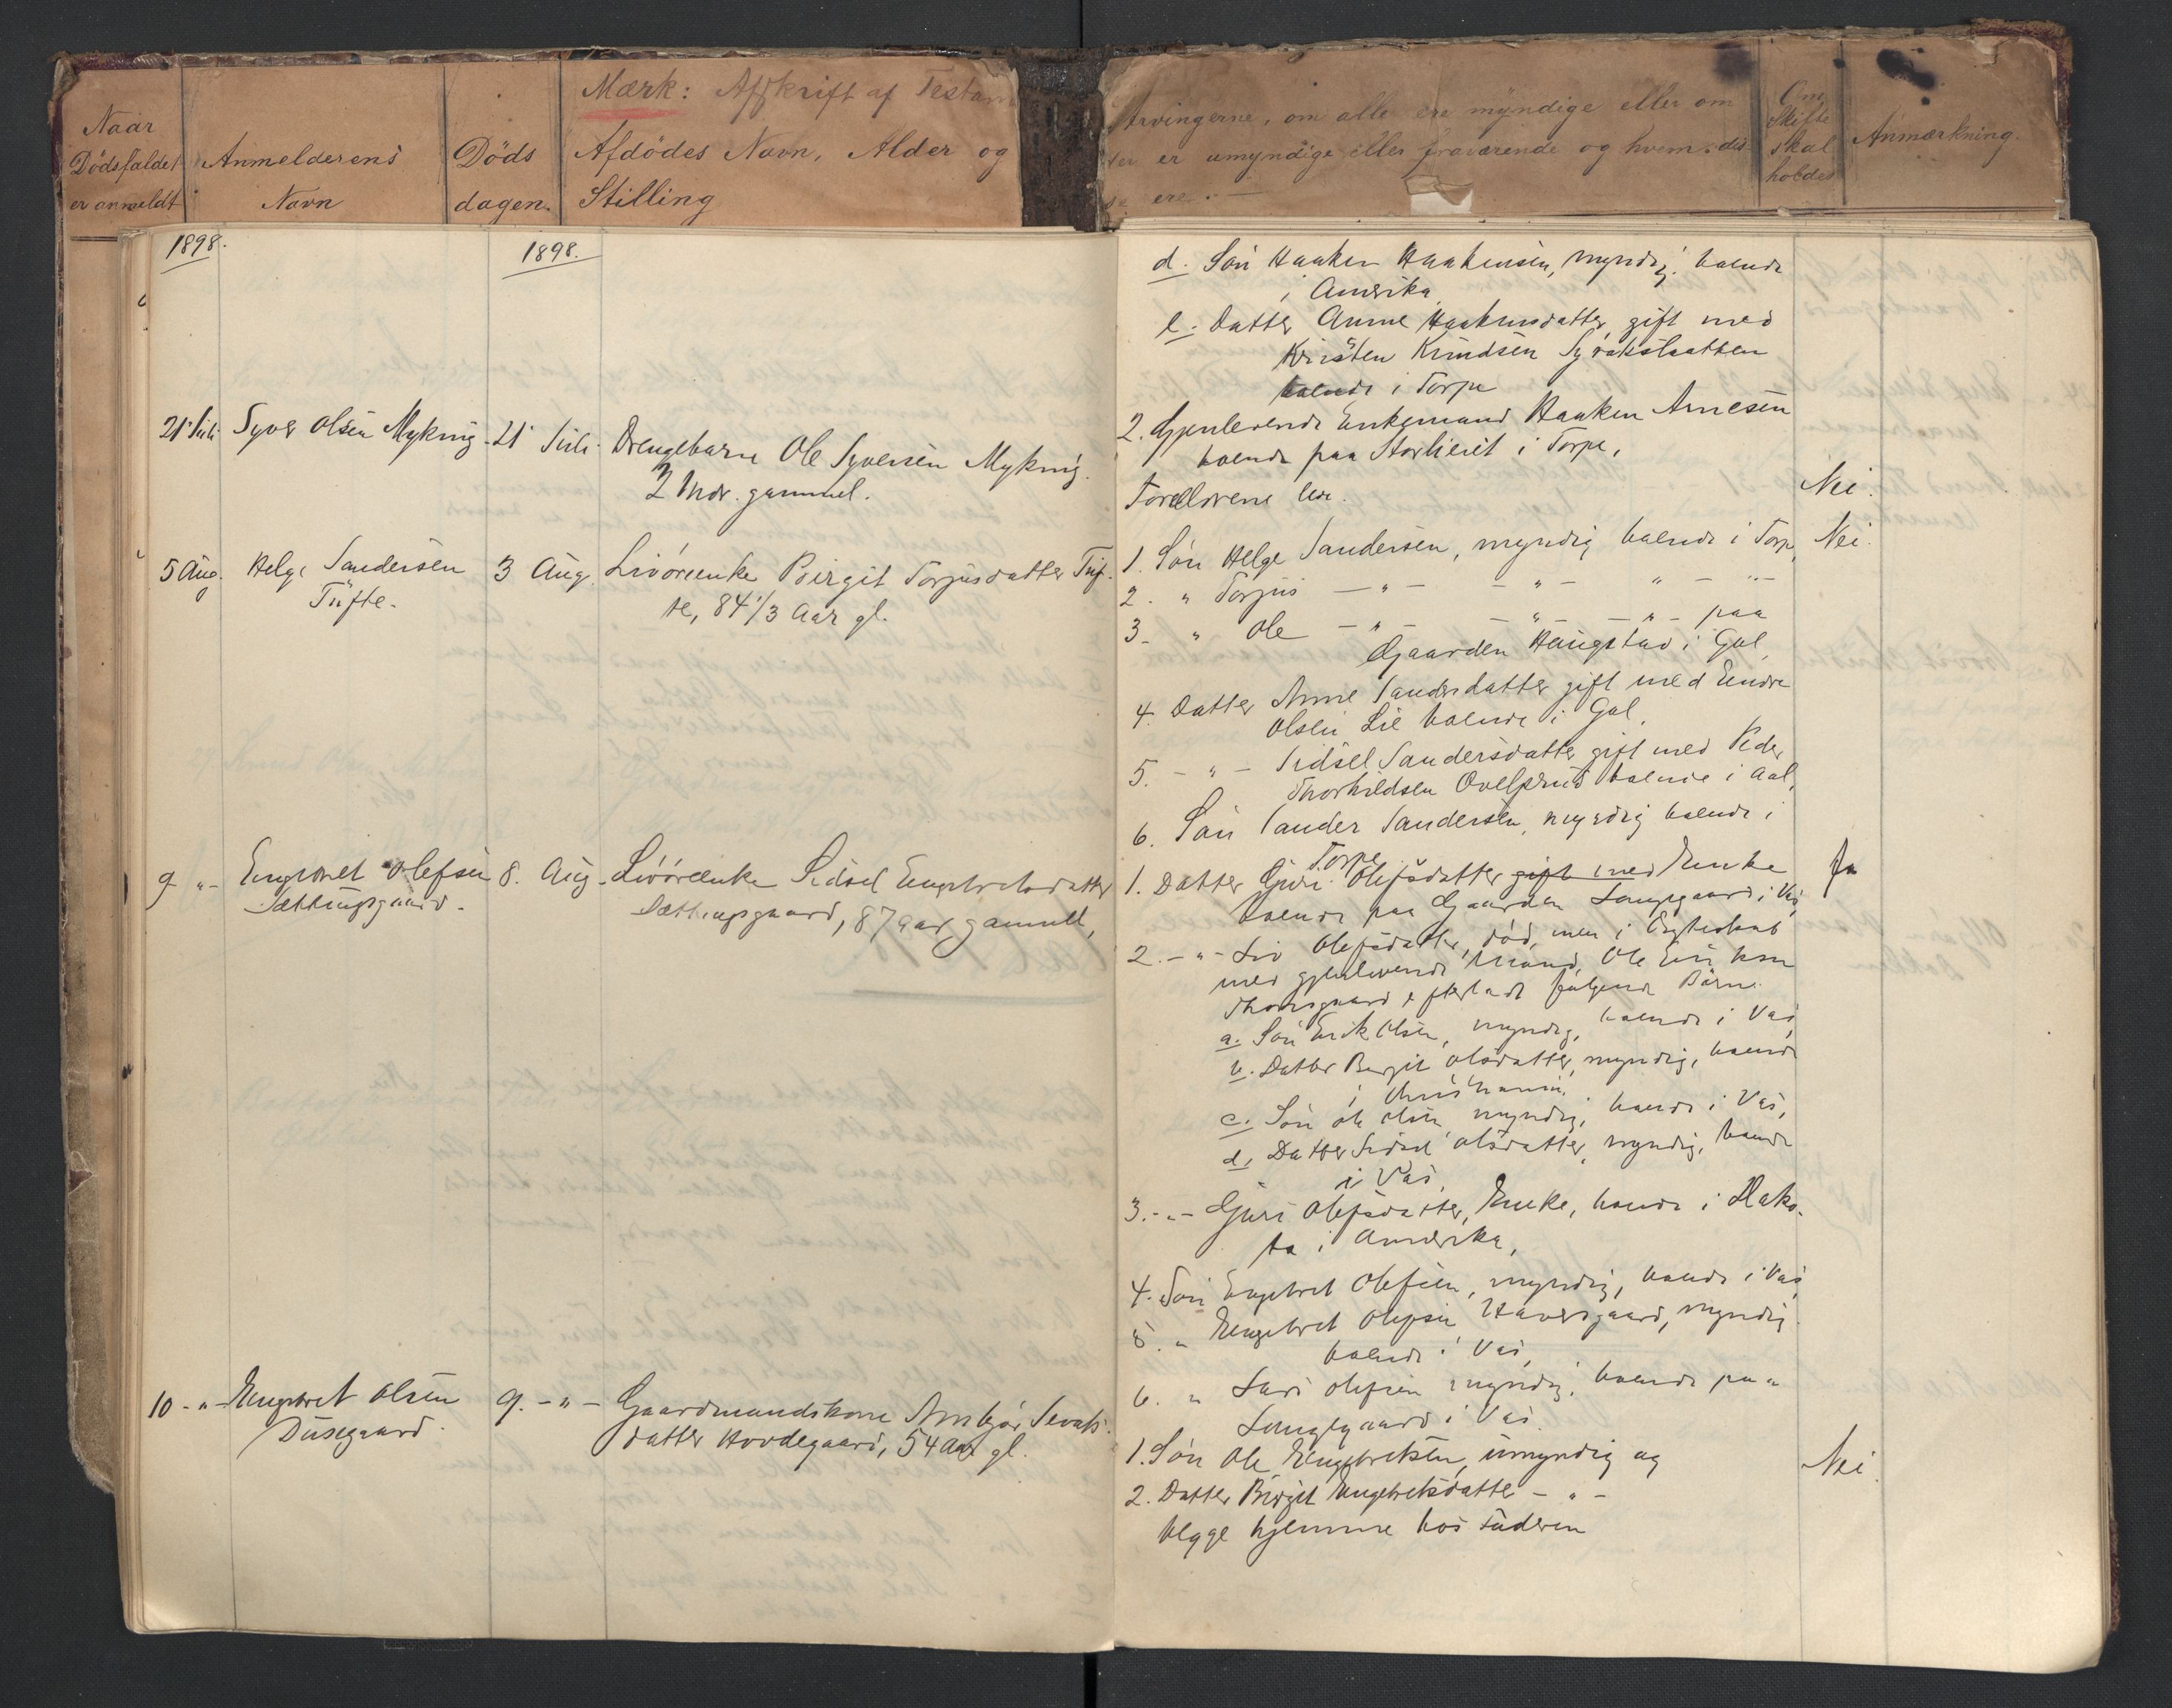 Mærk: Afskrift af Testam
Naar
Dödsfaldet
er anmeldt
Anmelderens
Navn
Döds
dagen.
Afdödes Navn, Alder og
Stilling
Arvingerne, om alle ere myndige eller om
er umyndige eller fraværende og hvem dis
se ere.
Om
Skifte
skal
holdes
Anmærkning.
1898.
1898.
d. Sön Haaken Haakensen, myndig, boende
i Amerika
e. Datter Anne Haakensdatter, gift med
Kristen Knudsen
boende i Torpe
2. Gjenlevende Enkemand Haaken Arnesen
boende paa Storlieeiet i Torpe,
21' Juli Syver Olsen Myking 21' Juli Drengebarn Ole Syversen Myking
2 Mdr. gammel.
Forældrene lever. Nei.
5 Aug. Helge Sandersen
Tufte.
3 Aug. Livöreenke Birgit Torjusdatter Tuf-
te, 84 1/3 Aar gl.
1. Sön Helge Sandersen, myndig boende i Torpe, Nei.
2. " Torjus — " — — " — " — " —
3. " Ole — " — — " — " — paa
Gaarden Haugstad i Gol,
4. Datter Anne Sandersdatter gift med Endre
Olsen Lie boende i Gol,
5. — " — Sidsel Sandersdatter gift med Peder
Thorkildsen Ovelsrud boende i Aal,
6. Sön Sander Sandersen, myndig boende i
Torpe
9 " — Engebret Olefsen
Sættungsgaard.
8. Aug. Livöreenke Sidsel Engebretsdatter
Sættungsgaard, 87 Aar gammel,
1. Datter Guri Olefsdatter gift med Enke Ja
boende paa Gaarden Langegaard i Vas,
2. — " — Liv Olefsdatter, död, men i Ægteskab
med gjenlevende Mand, Ole Eriksen
Thorsgaard efterladt fölgende Börn:
a. Sön Erik Olsen, myndig, boende i Vas,
b. Datter Bergit Olsdatter, myndig, boende
i Christiania,
c. Sön Ole Olsen, myndig, boende i Vas,
d. Datter Sidsel Olsdatter, myndig, boende
i Vas,
3. — " — Guri Olefsdatter, Enke, boende i Dako-
ta i Amerika,
4. Sön Engebret Olefsen, myndig, boende i Vas,
5. " Engebret Olefsen Haversgaard, myndig
boende i Vas,
6. " Lars Olefsen myndig, boende paa
Langegaard i Vas.
10 — " — Engebret Olsen
Dusegaard.
9. — " — Gaardmandskone Annbjör Sevats-
datter Hovdegaard, 54 Aar gl.
1. Sön Ole Engebretsen, umyndig og Nei.
2. Datter Birgit Engebretsdatter — " —
begge hjemme hos Faderen